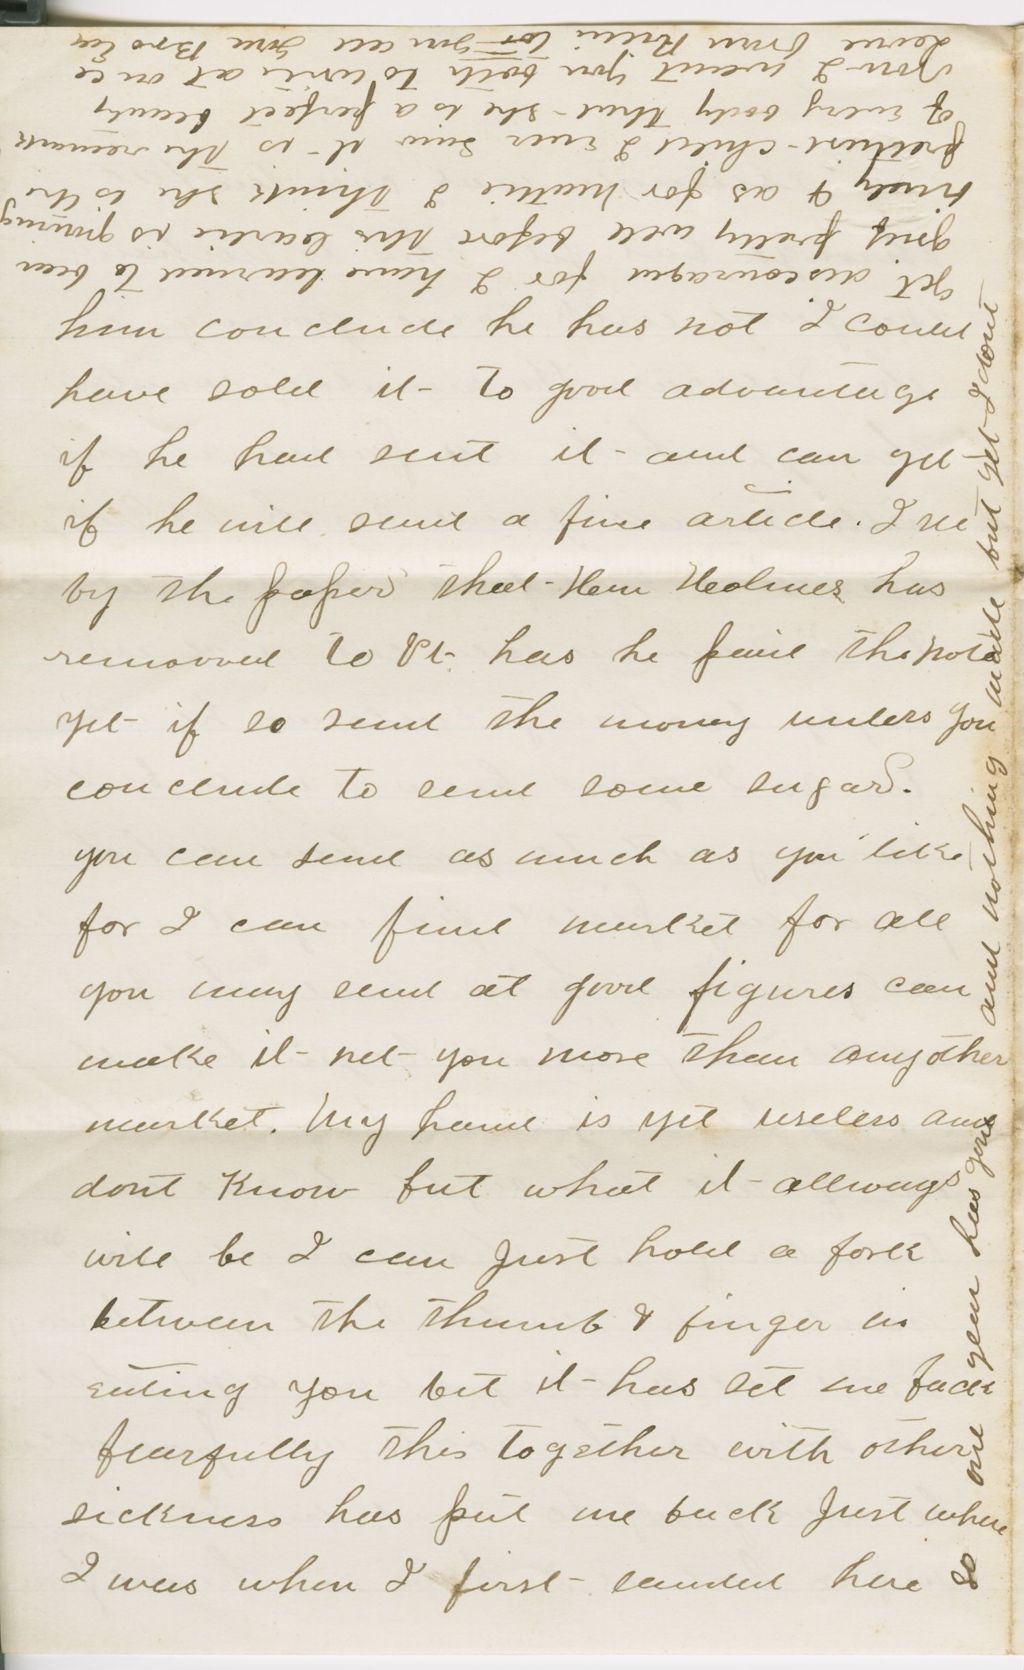 him conclude he has not I could
have sold it to good advantage
if he had sent it and can yet
if he will send a fine article. I see
by the papers that Hen Holmes has
removed to Vt. has he paid the note
yet if so send the money unless you
conclude to send some sugar.
you can send as much as you like
for I can find market for all
you may send at good figures can
make it net you more than any other
market. My hand is yet useless and
dont Know but what it allways
will be I can Just hold a fork
between the thumb & finger in
eating you bet it has set me back
fearfully this together with other
sickness has put me back Just where
I was when I first landed here
so one year has gone and nothing made but yet I dont
get discouraged for I have learned to bear
grief pretty well before this is growing
finely & as for Mattie I think she is the
prettiest child I ever saw it is the remark
of every body that she is a perfect beauty
Now I want you both to write at once
Your Bro